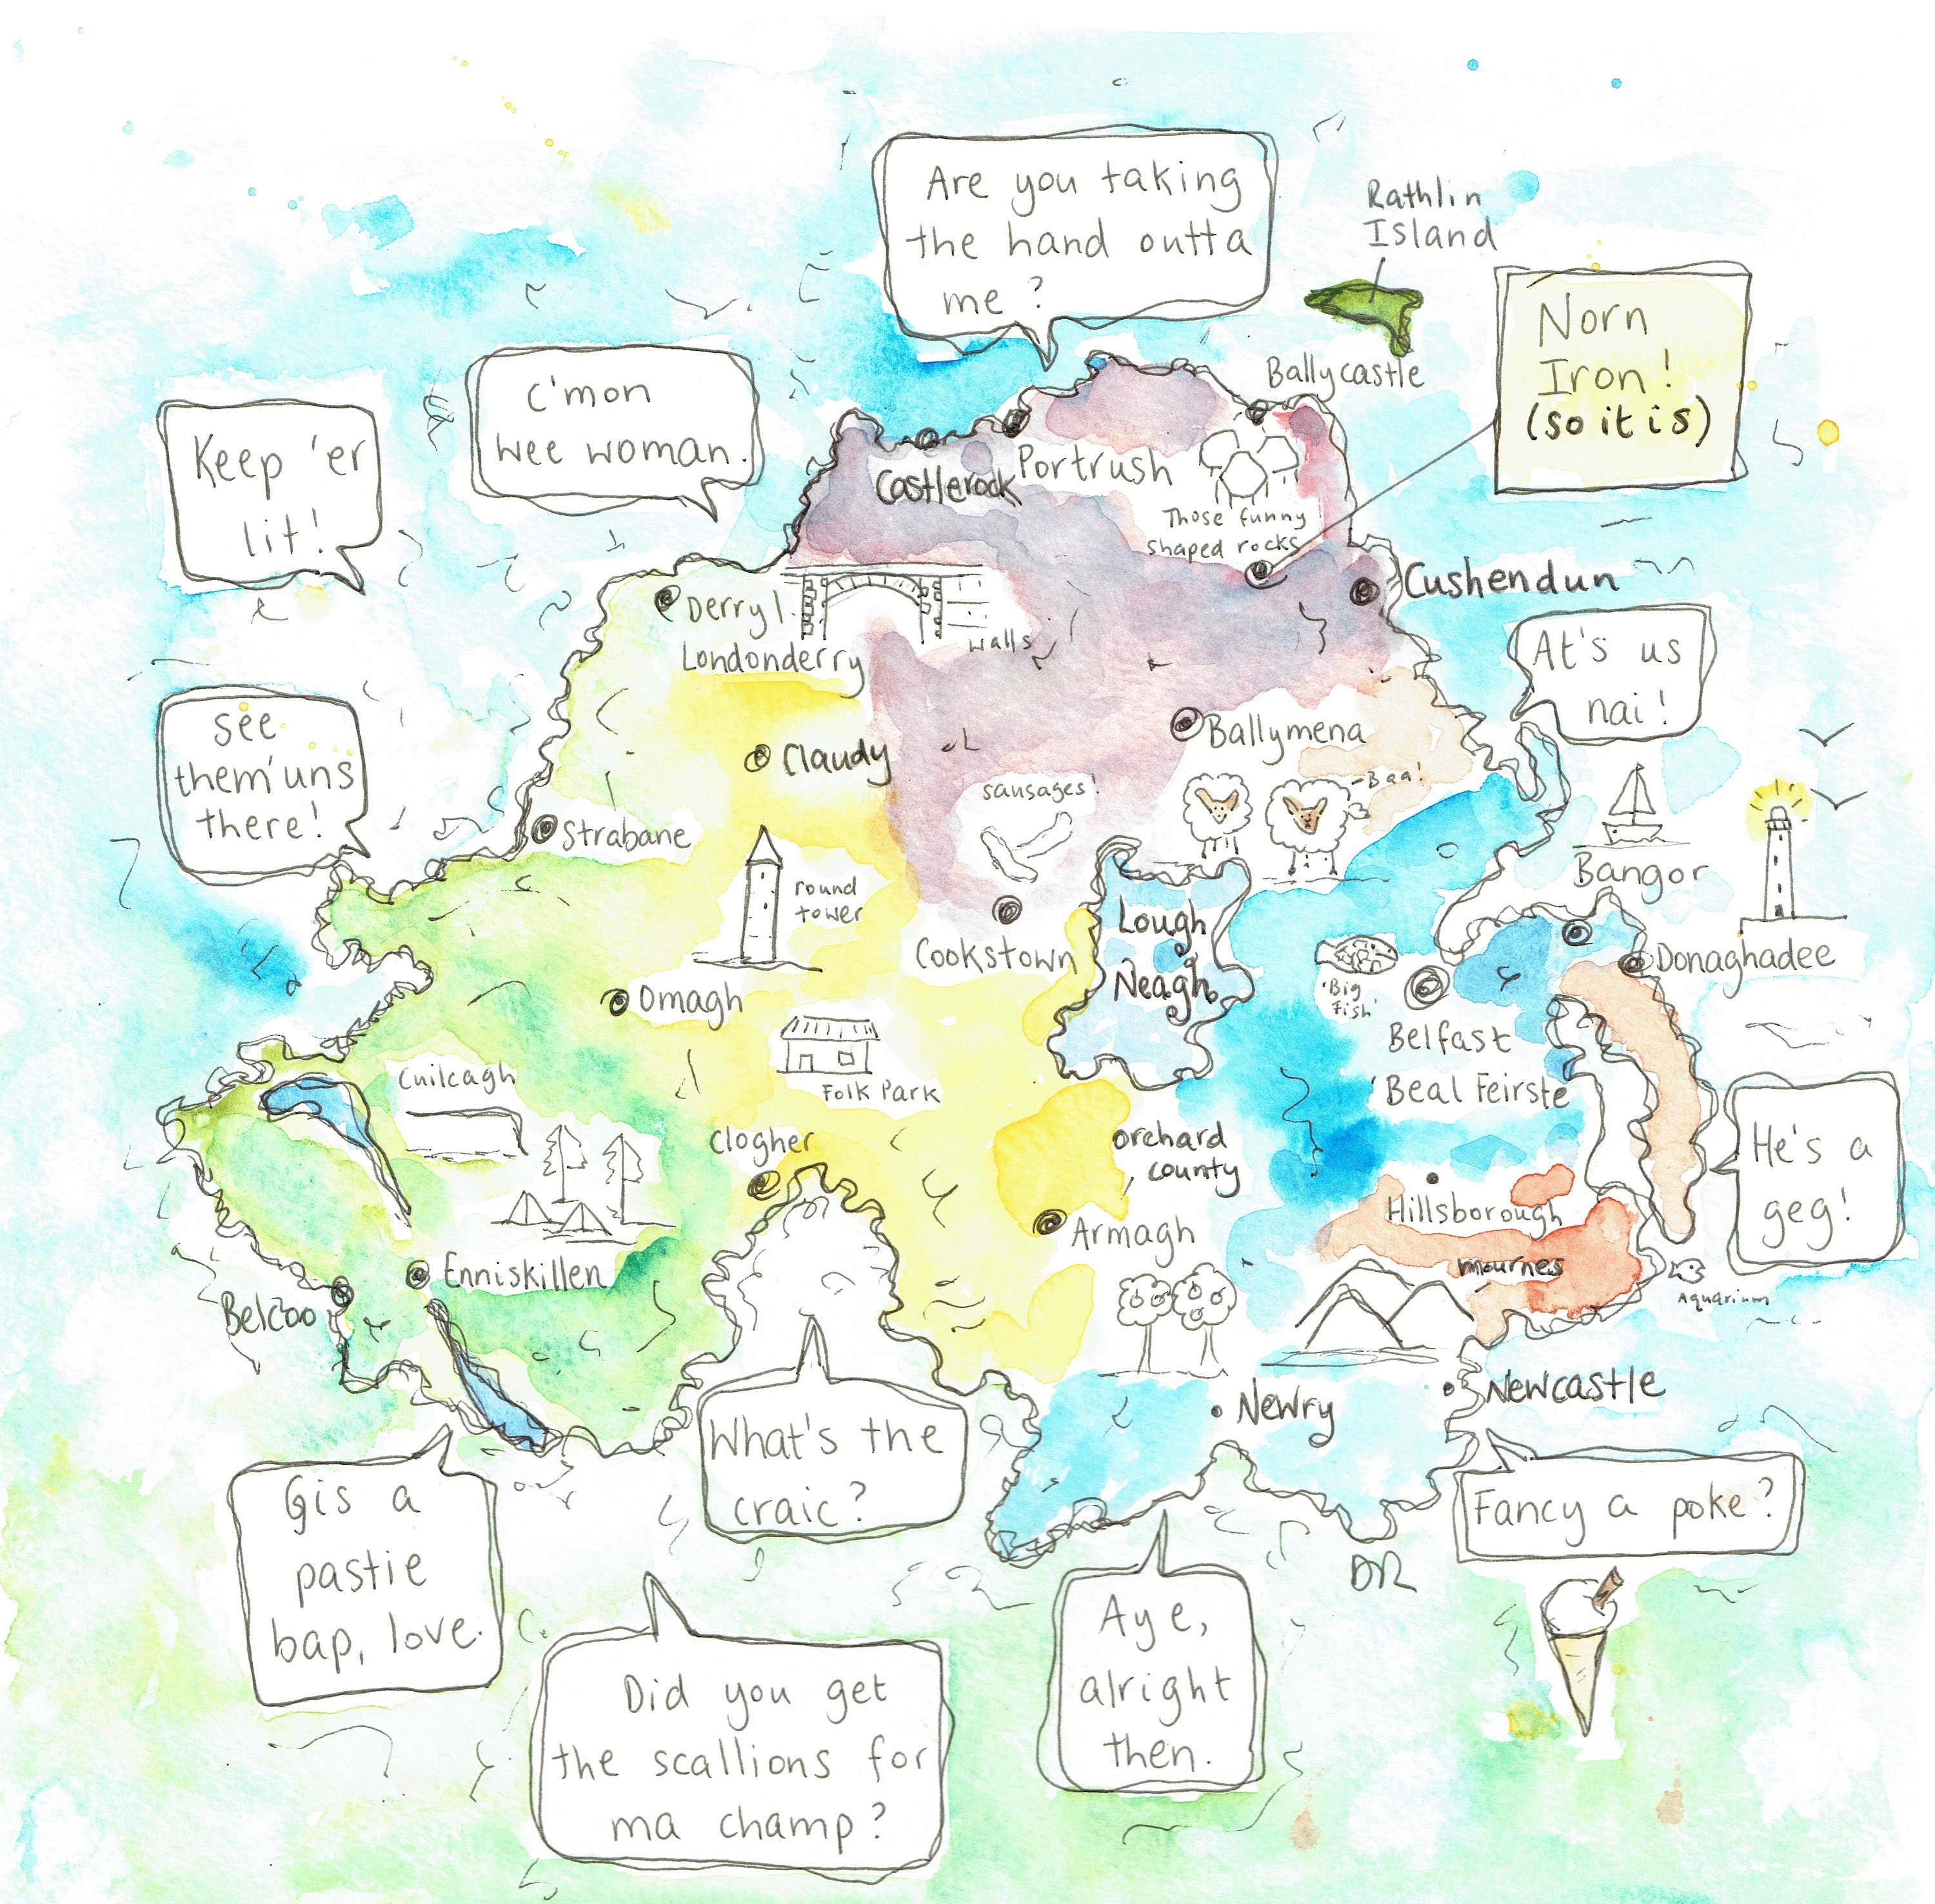 Are you taking
the hand outta
me?
Rathlin
Island
Norn
Iron!
(so it is)
c'mon
wee woman.
Keep 'er
lit!
Ballycastle
Portrush
Castlerock
Those funny
shaped rocks
Cushendun
Derry/
Londonderry
walls
At's us
nai!
see
them'uns
there!
Claudy
Ballymena
Baa!
sausages!
Strabane
Bangor
round
tower
Lough
Neagh
Cookstown
Donaghadee
'Big
Fish'
Belfast
'Beal Feirste
Omagh
Folk Park
Cuilcagh
Clogher
orchard
county
He's a
geg!
Hillsborough
Armagh
mournes
Aquarium
Enniskillen
Belcoo
Newcastle
Newry
What's the
craic?
Fancy a poke?
Gis a
pastie
bap, love.
DR
Aye,
alright
then.
Did you get
the scallions for
ma champ?